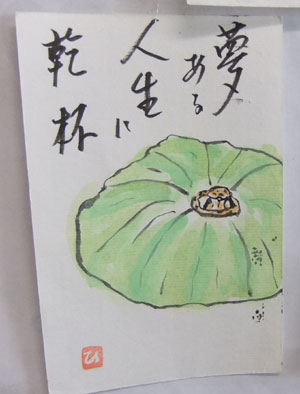 夢
ある
人生に
乾杯